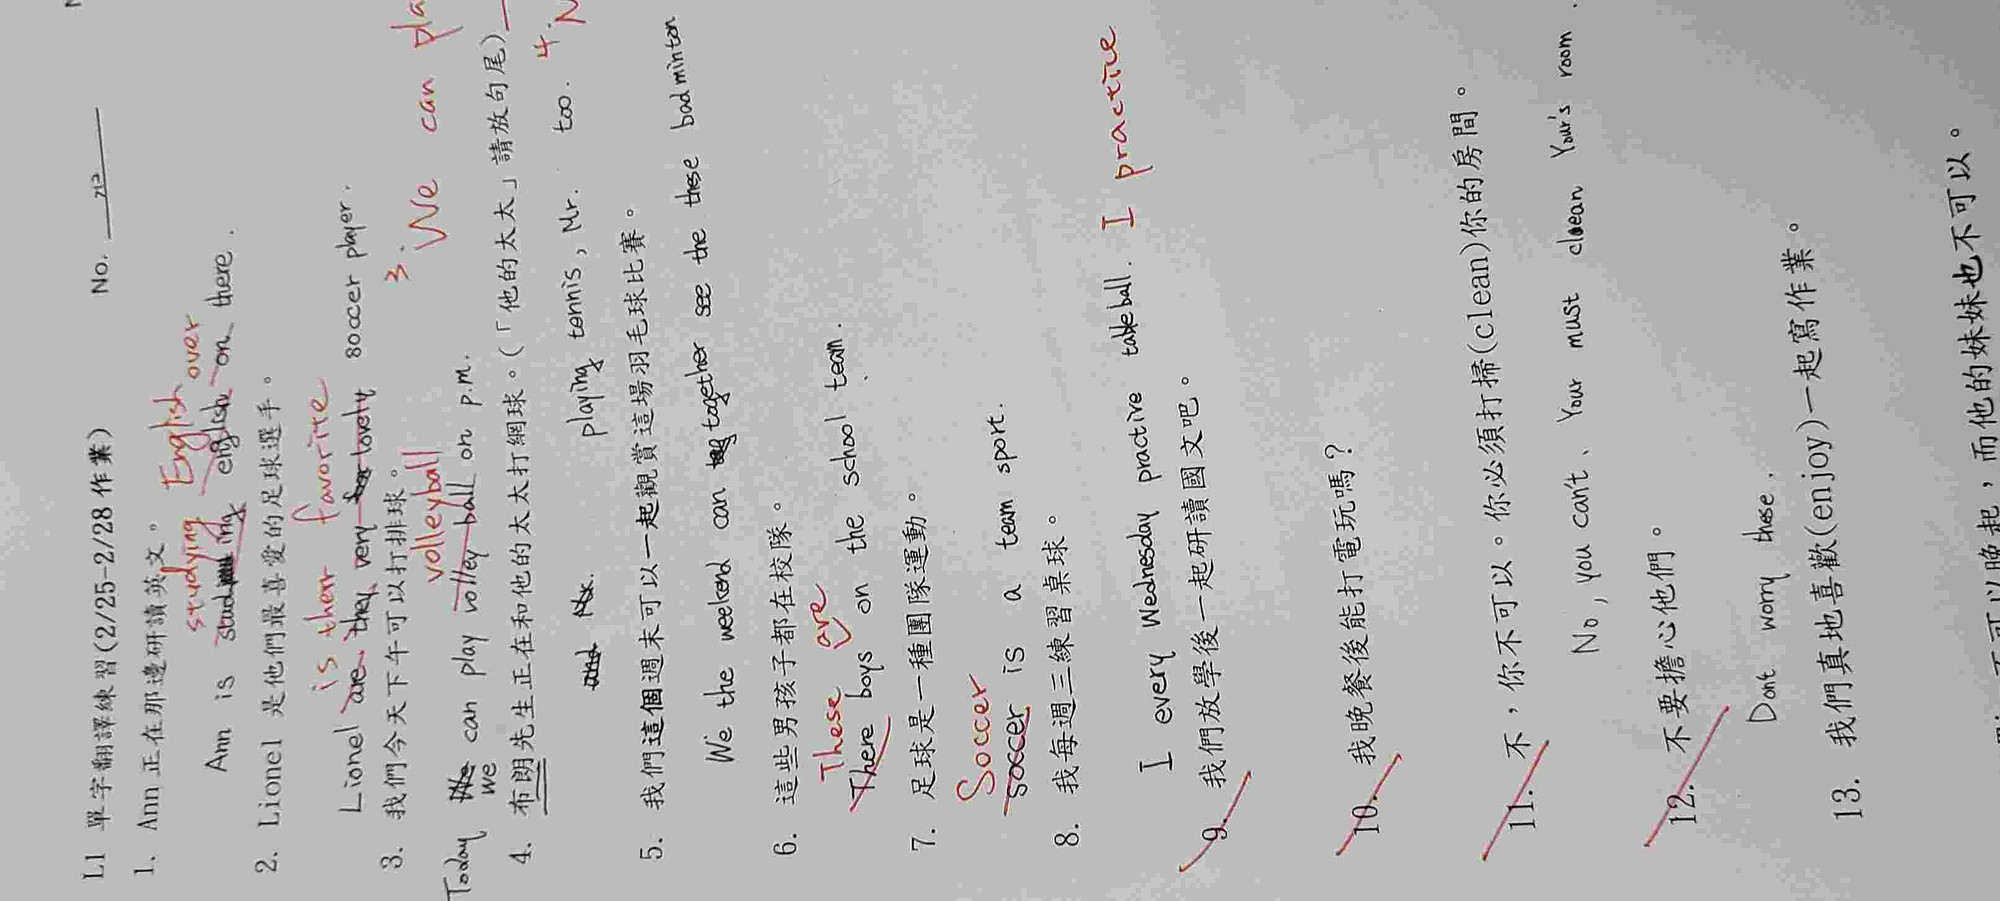 L1 單字翻譯練習(2/25-2/28 作業) No. 212
1. Ann 正在那邊研讀英文。
studying English over
Ann is studing english on there.
2. Lionel 是他們最喜愛的足球選手。
is their favorite
Lionel are they very lovely soccer player.
3. 我們今天下午可以打排球。
volleyball
3. We can pla
Today we can play volley ball on p.m.
4. 布朗先生正在和他的太太打網球。(「他的太太」請放句尾)
4.
and Mr. playing tennis, Mr. too.
5. 我們這個週末可以一起觀賞這場羽毛球比賽。
We the weekend can together see the these badminton
6. 這些男孩子都在校隊。
These are
There boys on the school team.
7. 足球是一種團隊運動。
Soccer
soccer is a team sport.
8. 我每週三練習桌球。
I every Wednesday practive table ball. I practice
9. 我們放學後一起研讀國文吧。
10. 我晚餐後能打電玩嗎?
11. 不,你不可以。你必須打掃(clean)你的房間。
No, you can't、Your must clean Your's room.
12. 不要擔心他們。
Dont worry these.
13. 我們真地喜歡(enjoy)一起寫作業。
不可以晚起,而他的妹妹也不可以。